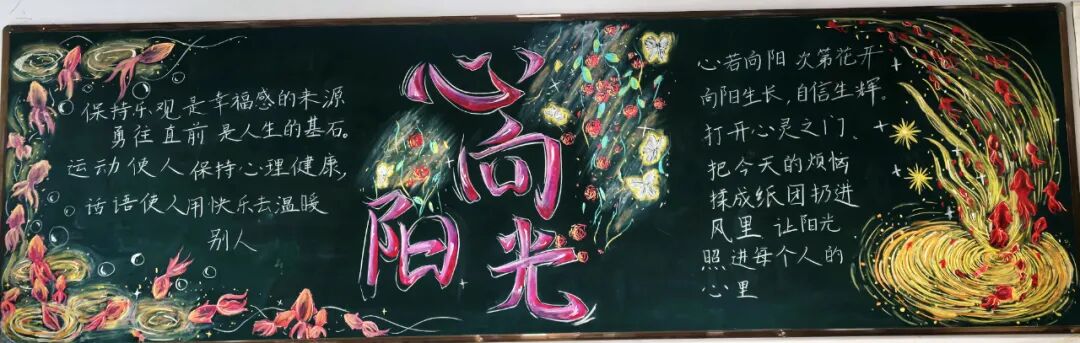 保持乐观是幸福感的来源
勇往直前是人生的基石。
运动使人保持心理健康,
话语使人用快乐去温暖
别人
心向
阳光
心若向阳 次第花开
向阳生长,自信生辉。
打开心灵之门、
把今天的烦恼
揉成纸团扔进
风里 让阳光
照进每个人的
心里